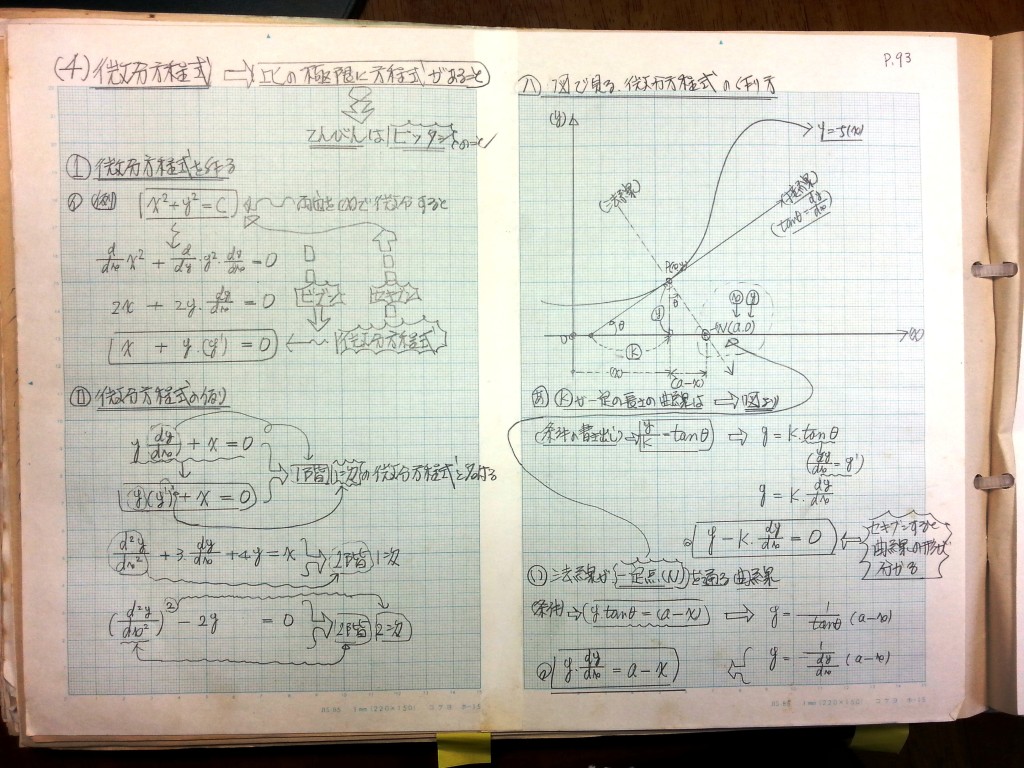 (4) 微分方程式 ⇨ 比の極限に方程式があること
てんびんは ピッタシ とのこと
Ⅰ 微分方程式を作る
例 x²+y²=C 両辺を(x)で微分すると
d/dx x² + d/dy・y²・dy/dx = 0
2x + 2y・dy/dx = 0
ビブン
セキブン
x + y・(y') = 0
微分方程式
Ⅱ 微分方程式の例
y(dy/dx) + x = 0
1階 1次 の微分方程式と名付る
(y)(y') + x = 0
d²y/dx² + 3・dy/dx + 4y = x 2階 1次
(d²y/dx²)² - 2y = 0 2階 2次
P.93
図で見る、微分方程式の作り方
(y)
y=f(x)
(法線)
(接線)
(tanθ = dy/dx)
P(x,y)
θ
θ
(y)
(x) (y)
0
N(a,0)
(x)
(k)
(x)
(a-x)
(k)が一定の長さの曲線は ⇨ 図より
(条件の書き出し) ⇨ y/k = tanθ ⇨ y = k・tanθ
(dy/dx = y')
y = k・dy/dx
y - k・dy/dx = 0
セキブンすると
曲線の形が
分かる
法線が 一定点(N) を通る曲線
(条件) ⇨ (y tanθ = (a-x)) ⇨ y = 1/tanθ (a-x)
y・dy/dx = a-x
y = 1/(dy/dx) (a-x)